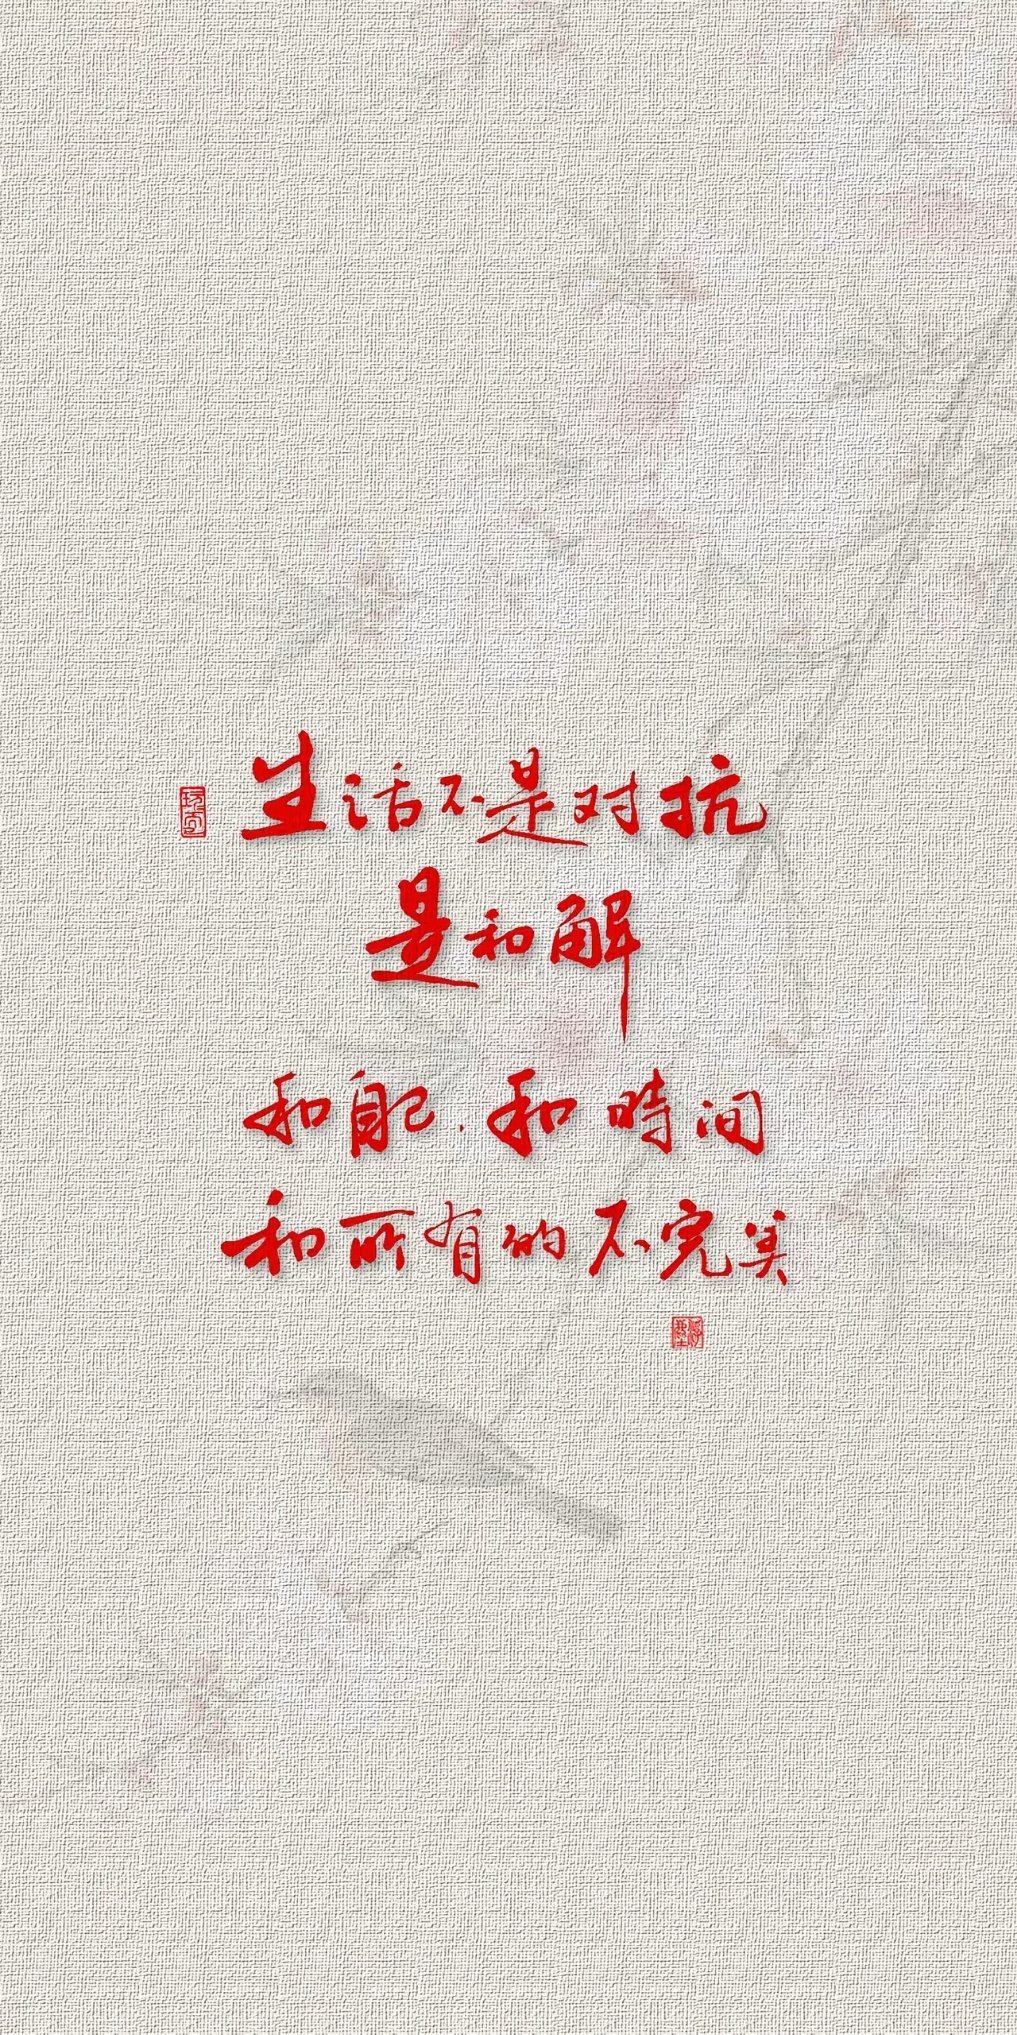 生活不是对抗
是和解
和自己.和時间
和所有的不完美